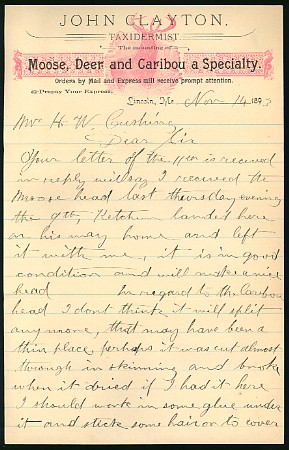 JOHN CLAYTON,
TAXIDERMIST.
The mounting of
Moose, Deer and Caribou a Specialty.
Orders by Mail and Express will receive prompt attention.
Prepay Your Express.
Lincoln, Me. Nov 14 1893
Mr H. W. Cushing
Dear Sir
Your letter of the 11th is received
in reply will say I received the
Moose head last thursday evening
the 9th, Ketchum landed here
on his way home and left
it with me, it is in good
condition and will make a nice
head In regard to the Caribou
head I dont think it will split
anymore, that may have been a
thin place, perhaps it was cut almost
through in skinning and broke
when it dried if I had it here
I should work in some glue under
it and stick some hair on to cover